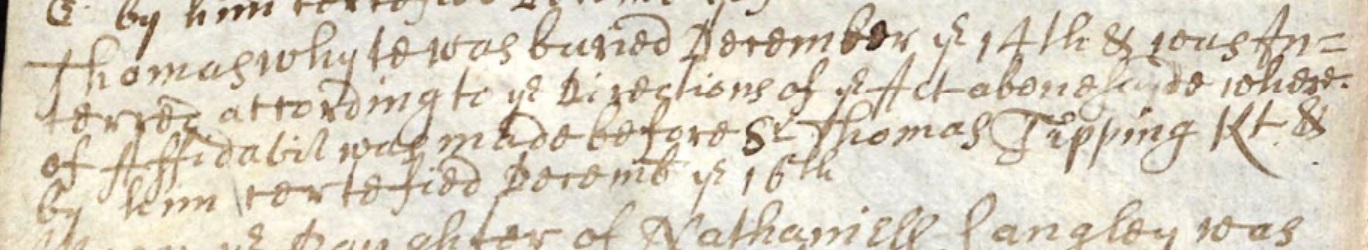 by him certefied
Thomas whyte was buried December ye 14th & was In=
terred according to ye Directions of ye Act above where=
of Affidabit was made before Sr Thomas Tipping Kt. &
by him certefied Decemb ye 16th
ye Daughter of Nathaniell Langley was